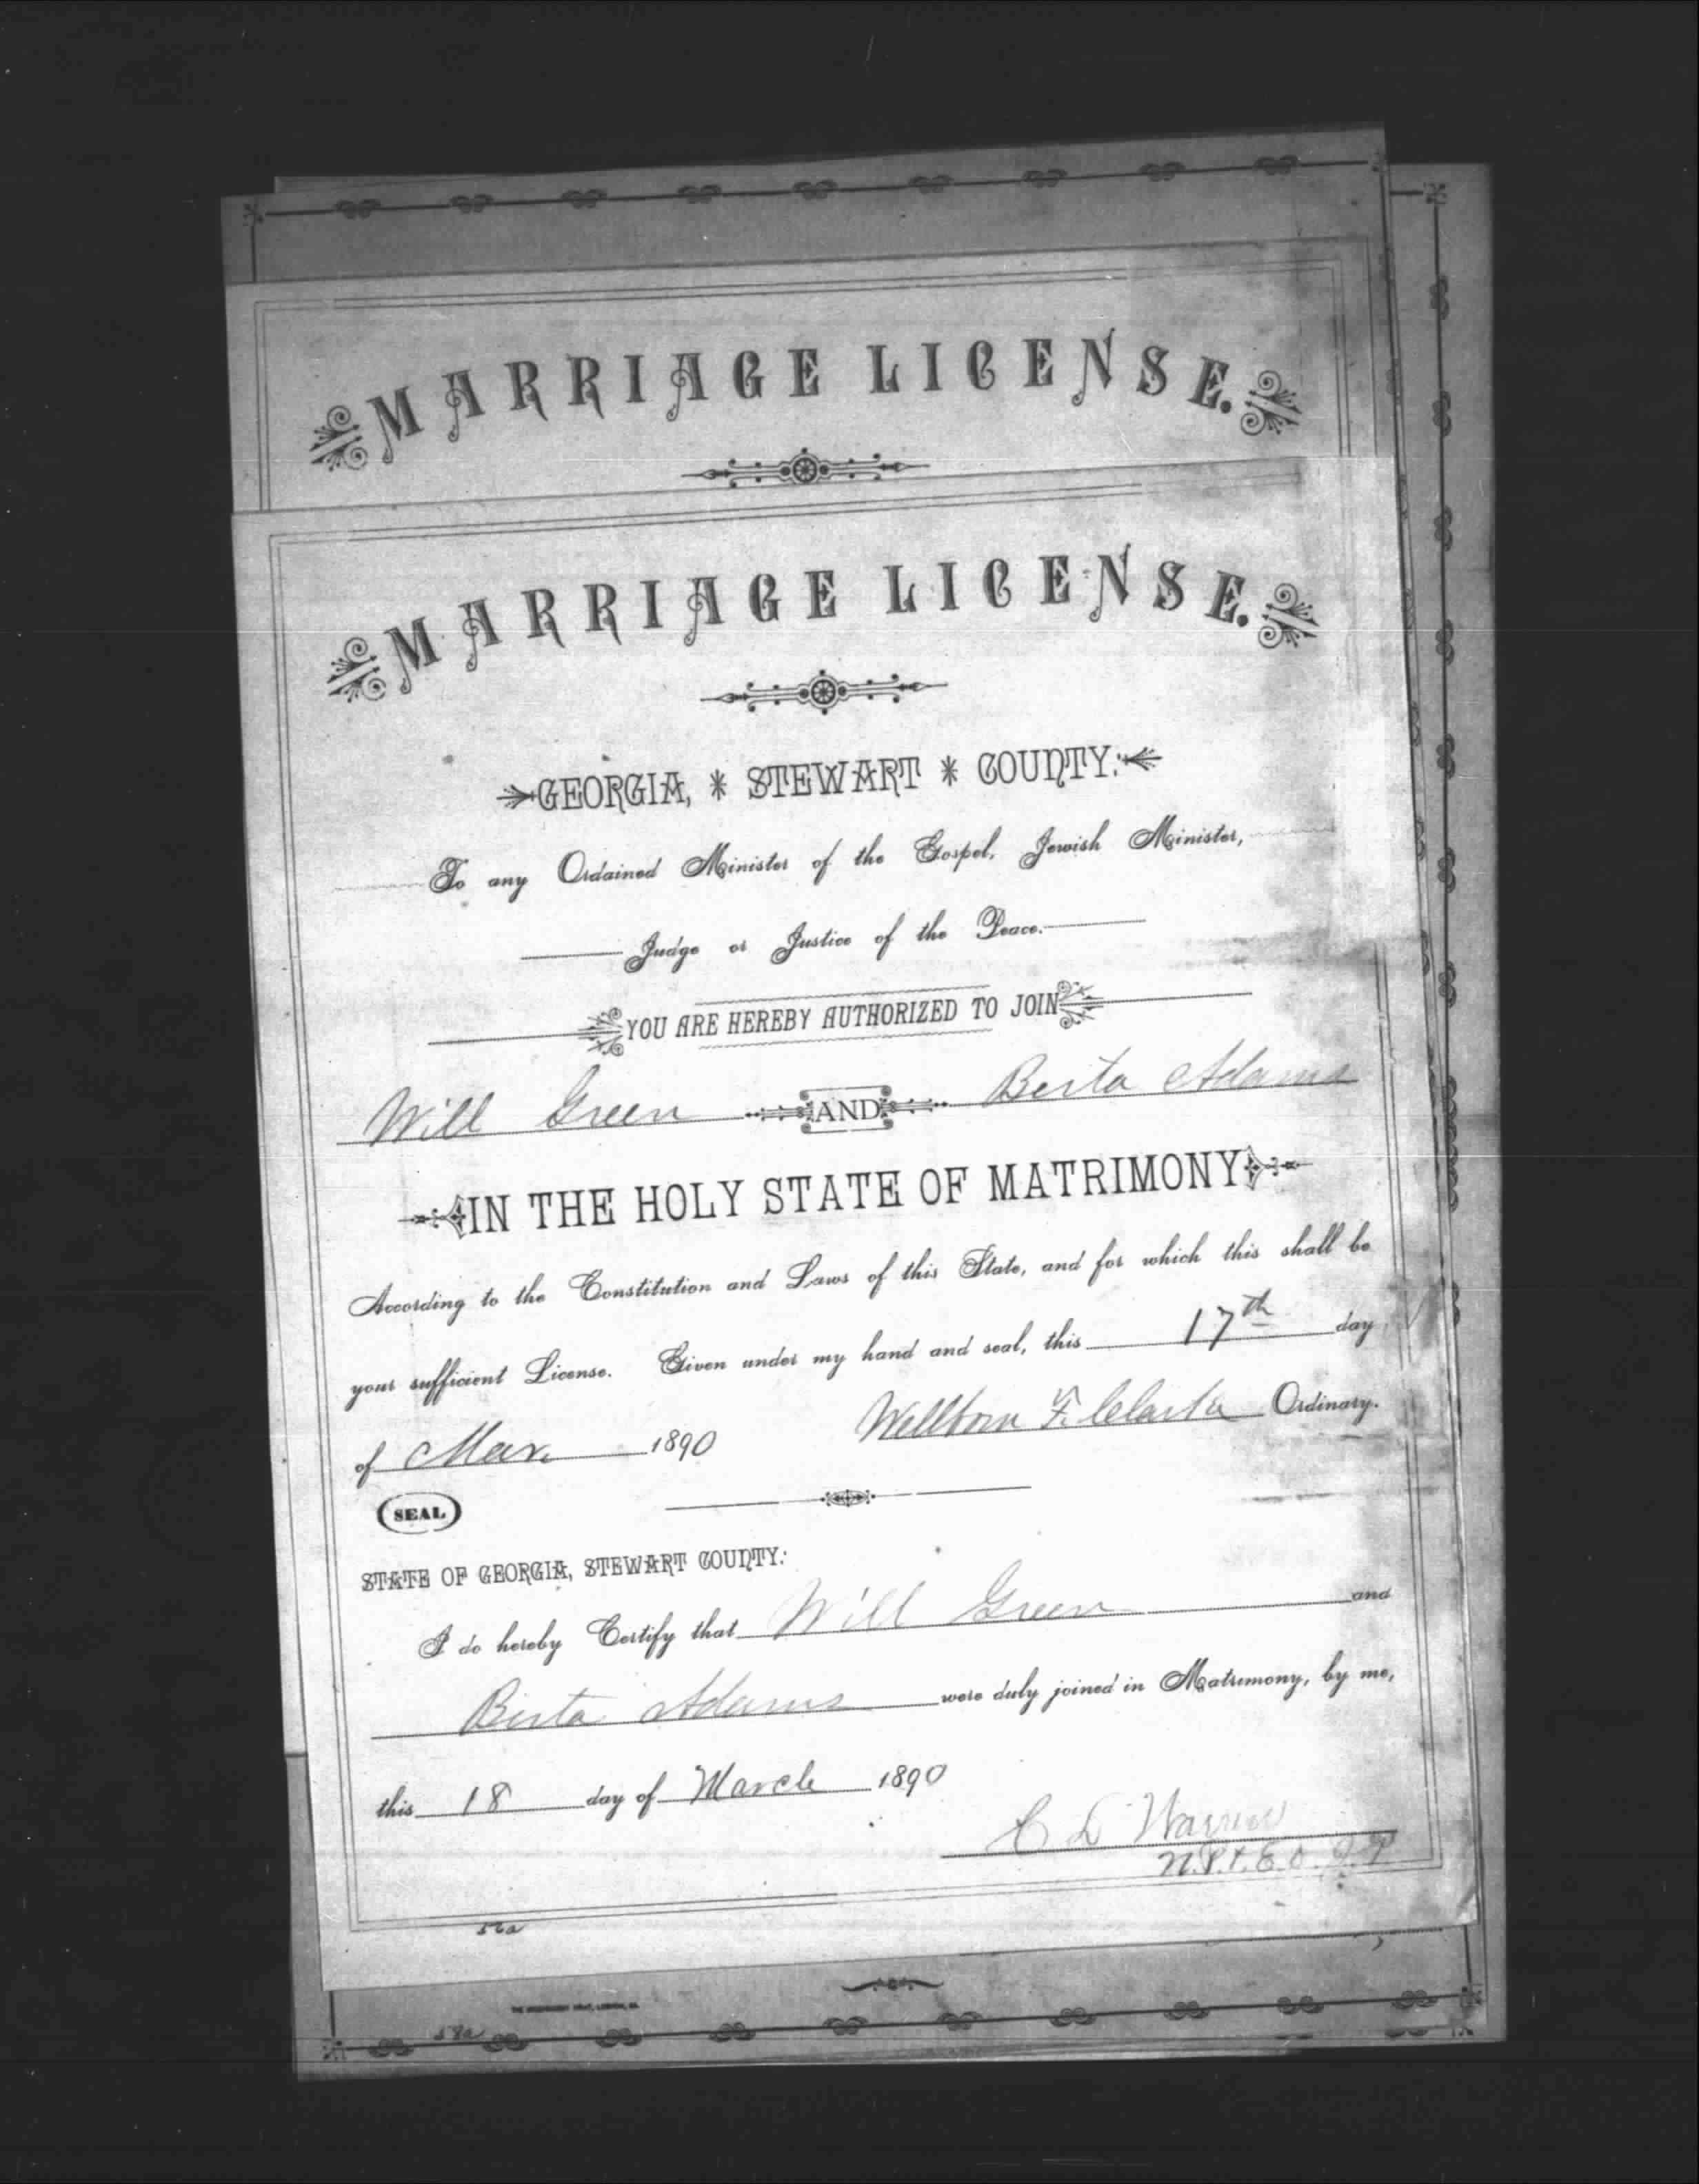 MARRIAGE LICENSE.
MARRIAGE LICENSE.
GEORGIA, * STEWART * COUNTY:
To any Ordained Minister of the Gospel, Jewish Minister,
Judge or Justice of the Peace.
YOU ARE HEREBY AUTHORIZED TO JOIN
Will Green AND Berta Adams
IN THE HOLY STATE OF MATRIMONY
According to the Constitution and Laws of this State, and for which this shall be
your sufficient License. Given under my hand and seal, this 17th day
of Mar. 1890 Wellborn F. Clarke Ordinary.
SEAL
STATE OF GEORGIA, STEWART COUNTY:
I do hereby Certify that Will Green and
Berta Adams were duly joined in Matrimony, by me,
this 18 day of March 1890
C D Warren
N.P. & E.O. J.P